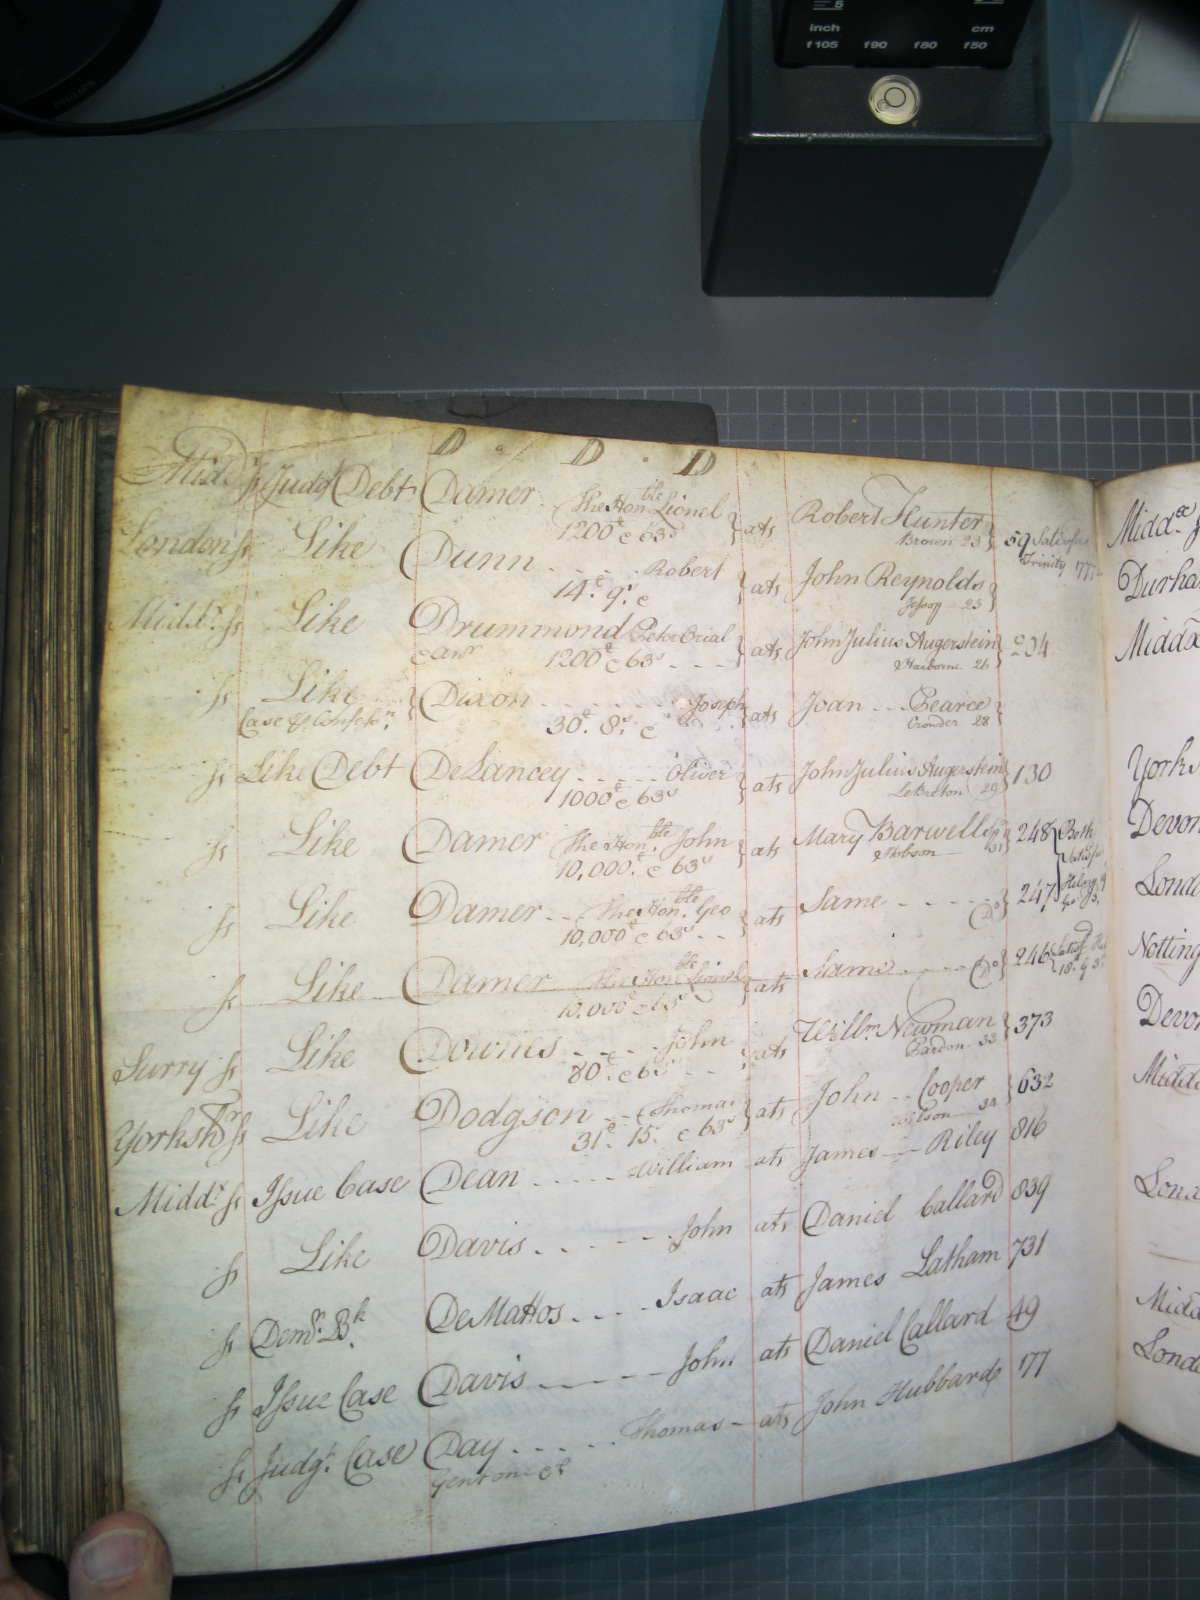 inch cm
f105 f90 f80 f50
PHILIPS
D . D . D
Midd.x ſs Judg.t Debt Damer The Hon.ble Lionel } ats Robert Hunter } 59 Satisfac
1200£ & 63s Brown 23 Trinity 1777
London ſs Like Dunn . . . . Robert } ats John Reynolds }
14£ 9s & Jessop 25
Midd.x ſs Like Drummond Peter Orial } ats John Julius Angerstein 204
1200£ & 63s - - - - Harborne 26
ſs Like { Dixon . . . . . . . Joseph } ats Joan . . . Pearce
Case & Confess.n 30£ 8s & Crowder 28
ſs Like Debt DeLancey . - . . Oliver } ats John Julius Angerstein 130
1000£ & 63s LeBreton 29
ſs Like Damer The Hon.ble John } ats Mary Barwell Sp.r 248 } Both
10,000£ & 63s Hobson 31
ſs Like Damer . . . The Hon.ble Geo } ats Same . - - - - 247
10,000£ & 63s - - D.o
ſs Like Damer The Hon.ble Lionel } ats Same . . . . D.o 246 Satisf
10,000£ & 63s 18
Surry ſs Like Downes . . . . John } ats Will.m Newman } 373
80£ & 63s - - Pardon 33
Yorksh ſs Like Dodgson . . . Thomas } ats John . . Cooper } 632
31£ 15s & 63s Wilson 34
Midd.x ſs Issue Case Dean . . . . . William ats James . . . Riley 816
ſs Like Davis . . . - - . John ats Daniel Callard 839
ſs Dem.r B.k DeMattos . . . . Isaac ats James Latham 731
ſs Issue Case Davis - - - - - John ats Daniel Callard 49
ſs Judg.t Case Day . . . . . . Thomas - ats John Hubbard 177
Gent one &c
Midd.x
Durha
Midd.x
Yorks
Devon
Londo
Notting
Devo
Midd
Lond
Midd
Londo